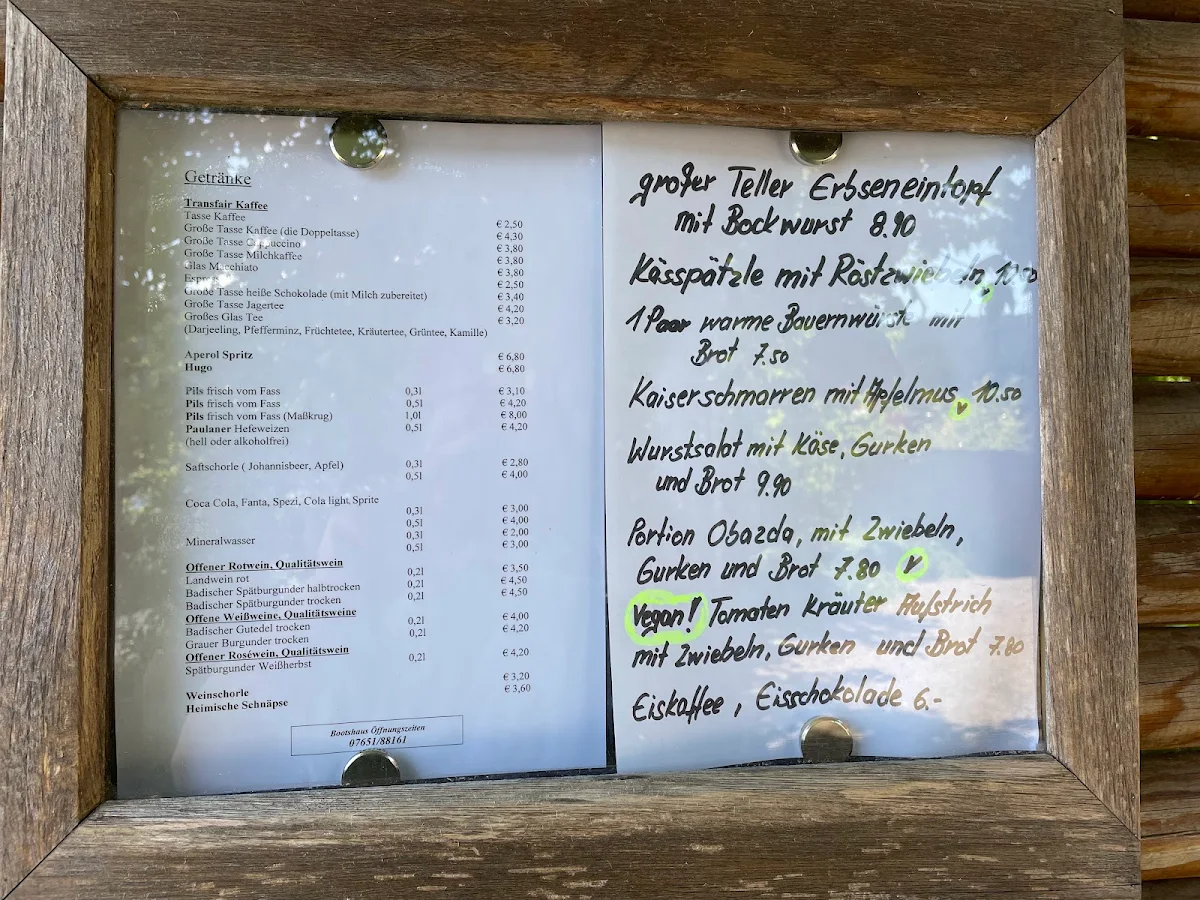 Getränke
Transfair Kaffee
Tasse Kaffee € 2,50
Große Tasse Kaffee (die Doppeltasse) € 4,30
Große Tasse Cappuccino € 3,80
Große Tasse Milchkaffee € 3,80
Glas Macchiato € 3,80
Espresso € 2,50
Große Tasse heiße Schokolade (mit Milch zubereitet) € 3,40
Große Tasse Jagertee € 4,20
Großes Glas Tee € 3,20
(Darjeeling, Pfefferminz, Früchtetee, Kräutertee, Grüntee, Kamille)
Aperol Spritz € 6,80
Hugo € 6,80
Pils frisch vom Fass 0,3l € 3,10
Pils frisch vom Fass 0,5l € 4,20
Pils frisch vom Fass (Maßkrug) 1,0l € 8,00
Paulaner Hefeweizen 0,5l € 4,20
(hell oder alkoholfrei)
Saftschorle ( Johannisbeer, Apfel) 0,3l € 2,80
0,5l € 4,00
Coca Cola, Fanta, Spezi, Cola light, Sprite
0,3l € 3,00
0,5l € 4,00
Mineralwasser 0,3l € 2,00
0,5l € 3,00
Offener Rotwein, Qualitätswein
Landwein rot 0,2l € 3,50
Badischer Spätburgunder halbtrocken 0,2l € 4,50
Badischer Spätburgunder trocken 0,2l € 4,50
Offene Weißweine, Qualitätsweine
Badischer Gutedel trocken 0,2l € 4,00
Grauer Burgunder trocken 0,2l € 4,20
Offener Roséwein, Qualitätswein
Spätburgunder Weißherbst 0,2l € 4,20
Weinschorle € 3,20
Heimische Schnäpse € 3,60
Bootshaus Öffnungszeiten
07651/88161
großer Teller Erbseneintopf
mit Bockwurst 8.90
Kässpätzle mit Röstzwiebeln 10.50
1 Paar warme Bauernwürste mit
Brot 7.50
Kaiserschmarren mit Apfelmus v 10.50
Wurstsalat mit Käse, Gurken
und Brot 9.90
Portion Obazda, mit Zwiebeln,
Gurken und Brot 7.80 v
Vegan! Tomaten Kräuter Aufstrich
mit Zwiebeln, Gurken und Brot 7.80
Eiskaffee, Eisschokolade 6.-